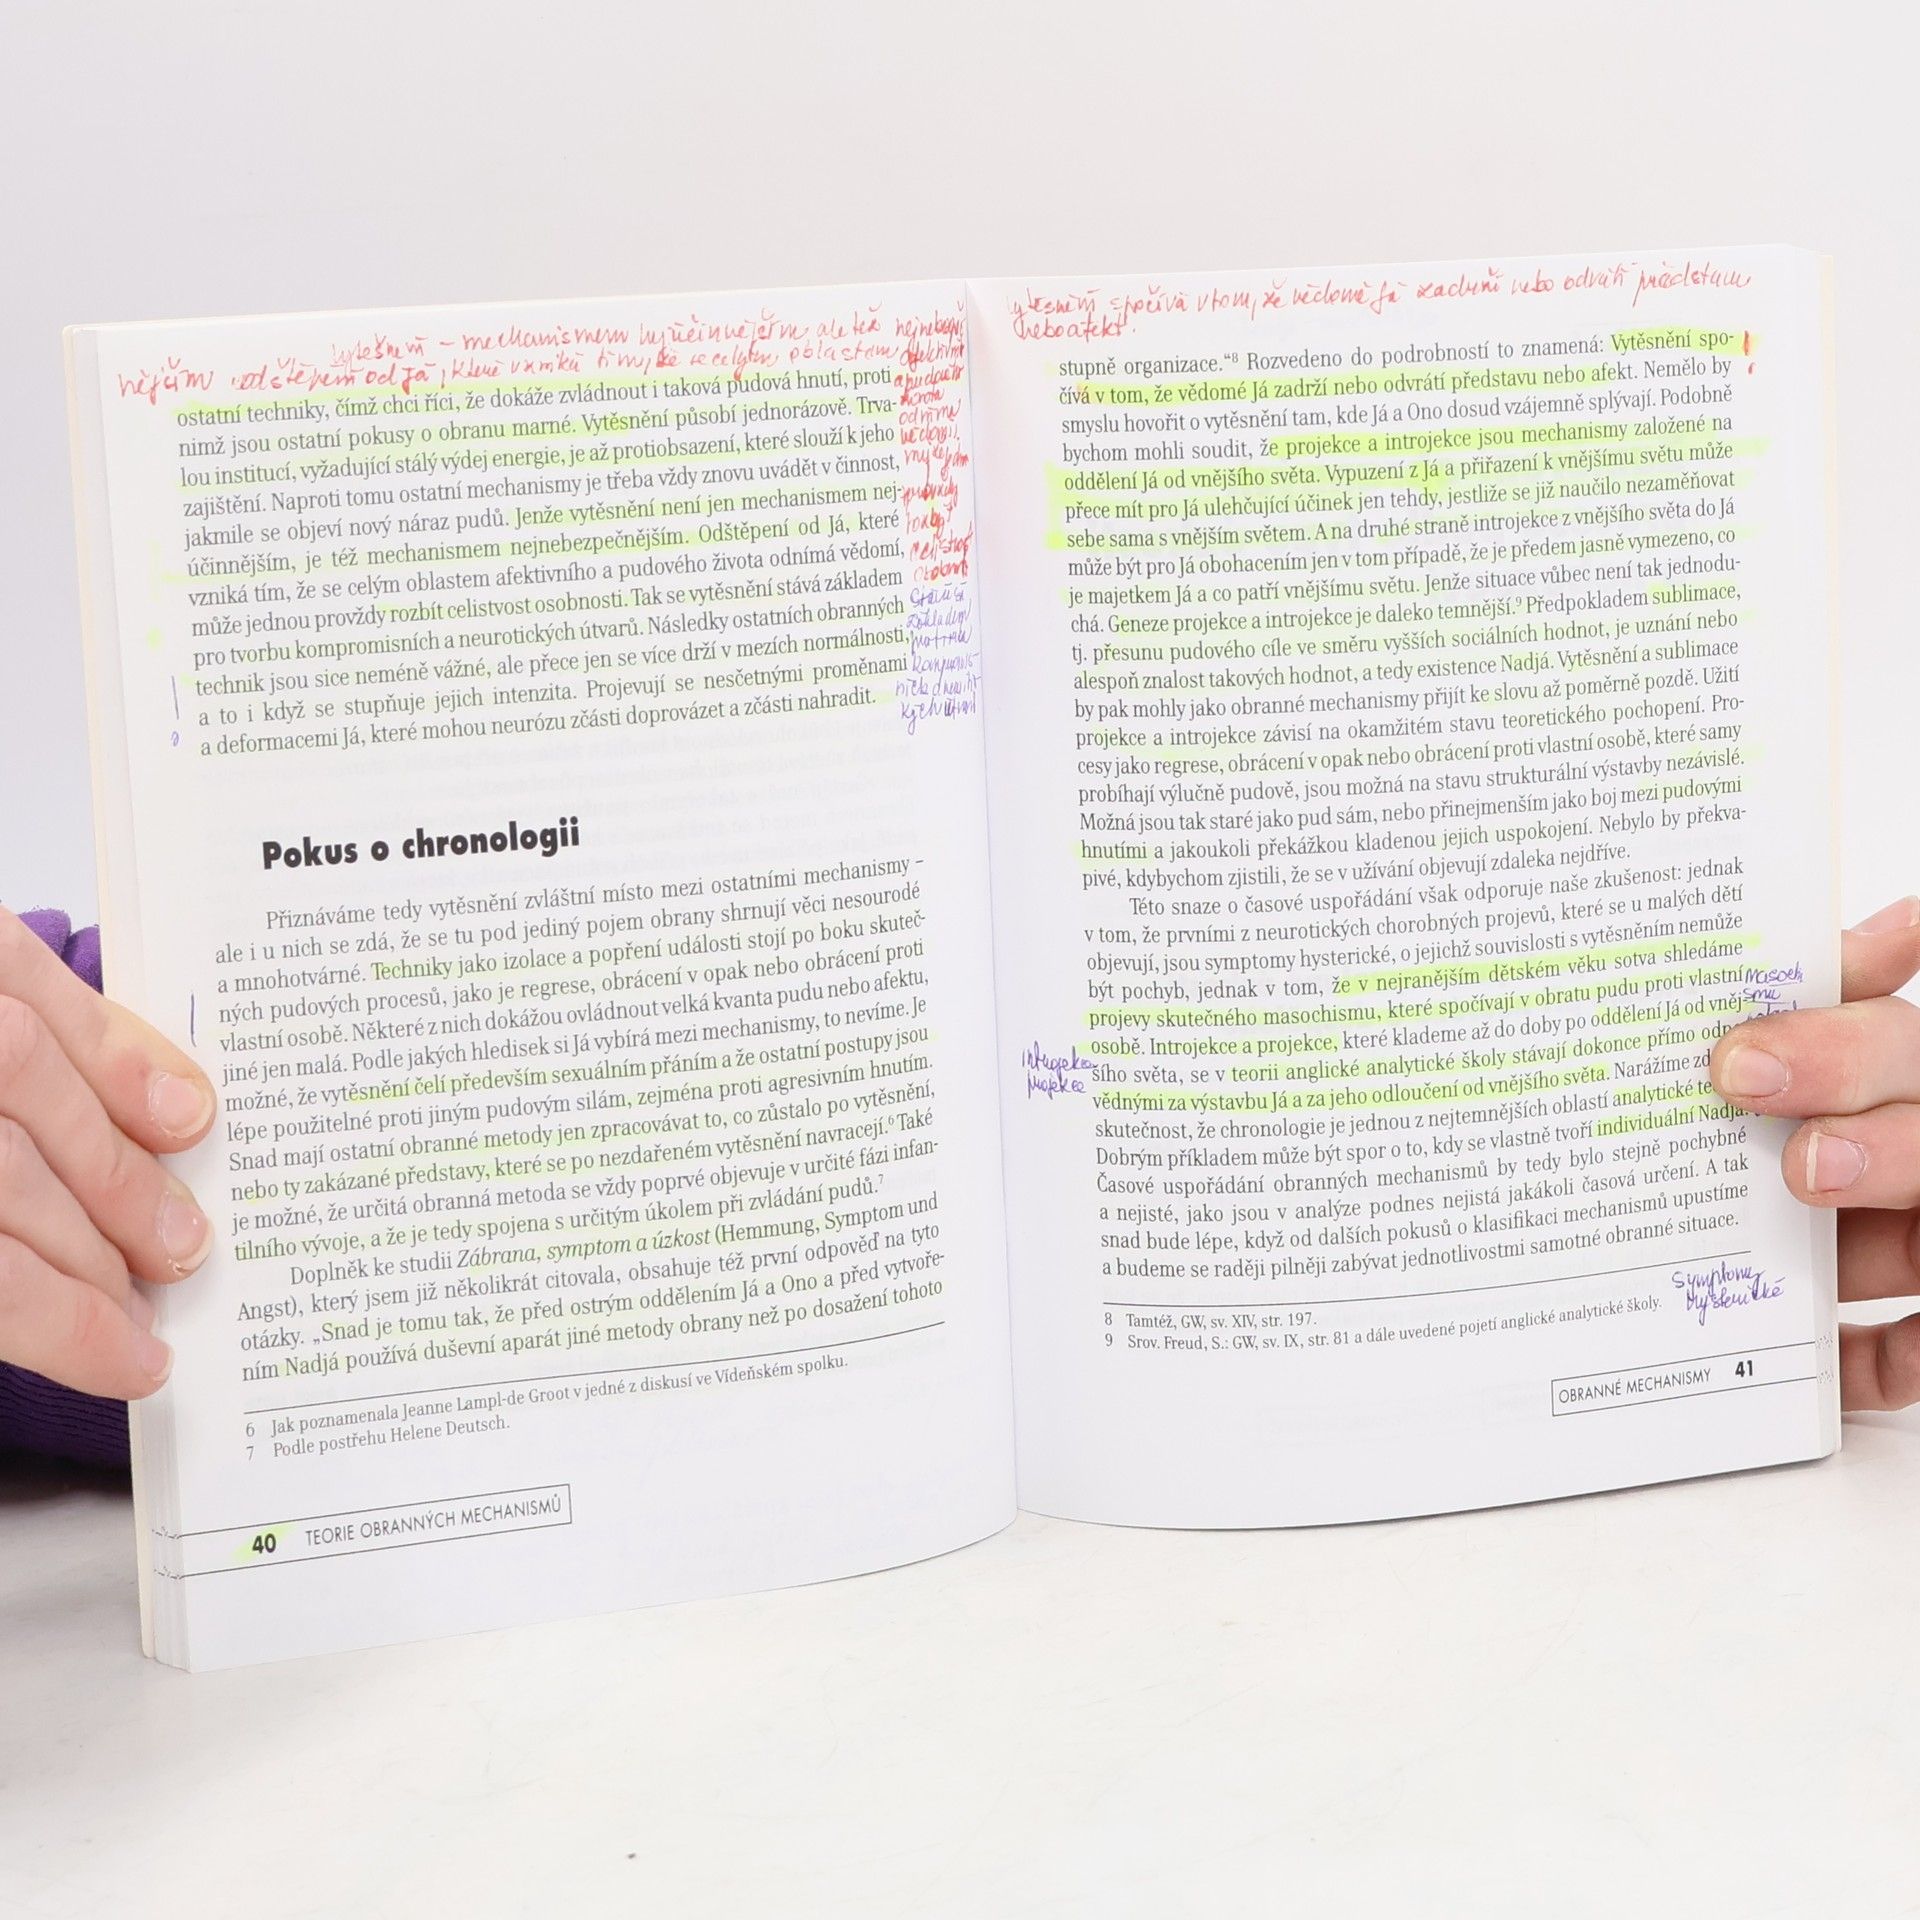 Vytěsnění – mechanismem nejúčinnějším ale též nejnebezpeč
nějším odštěpení od Já, které vzniká tím, že se celým oblastem
afektivního
a pudového
života
odnímá
vědomí,
může jedn
provždy
rozbít
celistvost
osobnosti
Stává se
základem
pro tvorbu
kompromis
ostatní techniky, čímž chci říci, že dokáže zvládnout i taková pudová hnutí, proti
nimž jsou ostatní pokusy o obranu marné. Vytěsnění působí jednorázově. Trva-
lou institucí, vyžadující stálý výdej energie, je až protiobsazení, které slouží k jeho
zajištění. Naproti tomu ostatní mechanismy je třeba vždy znovu uvádět v činnost,
jakmile se objeví nový náraz pudů. Jenže vytěsnění není jen mechanismem nej-
účinnějším, je též mechanismem nejnebezpečnějším. Odštěpení od Já, které
vzniká tím, že se celým oblastem afektivního a pudového života odnímá vědomí,
může jednou provždy rozbít celistvost osobnosti. Tak se vytěsnění stává základem
pro tvorbu kompromisních a neurotických útvarů. Následky ostatních obranných
technik jsou sice neméně vážné, ale přece jen se více drží v mezích normálnosti,
a to i když se stupňuje jejich intenzita. Projevují se nesčetnými proměnami
a deformacemi Já, které mohou neurózu zčásti doprovázet a zčásti nahradit.
Pokus o chronologii
Přiznáváme tedy vytěsnění zvláštní místo mezi ostatními mechanismy –
ale i u nich se zdá, že se tu pod jediný pojem obrany shrnují věci nesourodé
a mnohotvárné. Techniky jako izolace a popření události stojí po boku skuteč-
ných pudových procesů, jako je regrese, obrácení v opak nebo obrácení proti
vlastní osobě. Některé z nich dokážou ovládnout velká kvanta pudu nebo afektu,
jiné jen malá. Podle jakých hledisek si Já vybírá mezi mechanismy, to nevíme. Je
možné, že vytěsnění čelí především sexuálním přáním a že ostatní postupy jsou
lépe použitelné proti jiným pudovým silám, zejména proti agresivním hnutím.
Snad mají ostatní obranné metody jen zpracovávat to, co zůstalo po vytěsnění,
nebo ty zakázané představy, které se po nezdařeném vytěsnění navracejí.⁶ Také
je možné, že určitá obranná metoda se vždy poprvé objevuje v určité fázi infan-
tilního vývoje, a že je tedy spojena s určitým úkolem při zvládání pudů.⁷
Doplněk ke studii Zábrana, symptom a úzkost (Hemmung, Symptom und
Angst), který jsem již několikrát citovala, obsahuje též první odpověď na tyto
otázky. „Snad je tomu tak, že před ostrým oddělením Já a Ono a před vytvoře-
ním Nadjá používá duševní aparát jiné metody obrany než po dosažení tohoto
6 Jak poznamenala Jeanne Lampl-de Groot v jedné z diskusí ve Vídeňském spolku.
7 Podle postřehu Helene Deutsch.
40 TEORIE OBRANNÝCH MECHANISMŮ
Vytěsnění spočívá v tom, že vědomé Já zadrží nebo odvrátí představu
nebo afekt.
stupně organizace.“⁸ Rozvedeno do podrobností to znamená: Vytěsnění spo-
čívá v tom, že vědomé Já zadrží nebo odvrátí představu nebo afekt. Nemělo by
smyslu hovořit o vytěsnění tam, kde Já a Ono dosud vzájemně splývají. Podobně
bychom mohli soudit, že projekce a introjekce jsou mechanismy založené na
oddělení Já od vnějšího světa. Vypuzení z Já a přiřazení k vnějšímu světu může
přece mít pro Já ulehčující účinek jen tehdy, jestliže se již naučilo nezaměňovat
sebe sama s vnějším světem. A na druhé straně introjekce z vnějšího světa do Já
může být pro Já obohacením jen v tom případě, že je předem jasně vymezeno, co
je majetkem Já a co patří vnějšímu světu. Jenže situace vůbec není tak jednodu-
chá. Geneze projekce a introjekce je daleko temnější.⁹ Předpokladem sublimace,
tj. přesunu pudového cíle ve směru vyšších sociálních hodnot, je uznání nebo
alespoň znalost takových hodnot, a tedy existence Nadjá. Vytěsnění a sublimace
by pak mohly jako obranné mechanismy přijít ke slovu až poměrně pozdě. Užití
projekce a introjekce závisí na okamžitém stavu teoretického pochopení. Pro-
cesy jako regrese, obrácení v opak nebo obrácení proti vlastní osobě, které samy
probíhají výlučně pudově, jsou možná na stavu strukturální výstavby nezávislé.
Možná jsou tak staré jako pud sám, nebo přinejmenším jako boj mezi pudovými
hnutími a jakoukoli překážkou kladenou jejich uspokojení. Nebylo by překva-
pivé, kdybychom zjistili, že se v užívání objevují zdaleka nejdříve.
Této snaze o časové uspořádání však odporuje naše zkušenost: jednak
v tom, že prvními z neurotických chorobných projevů, které se u malých dětí
objevují, jsou symptomy hysterické, o jejichž souvislosti s vytěsněním nemůže
být pochyb, jednak v tom, že v nejranějším dětském věku sotva shledáme
projevy skutečného masochismu, které spočívají v obratu pudu proti vlastní
osobě. Introjekce a projekce, které klademe až do doby po oddělení Já od vněj-
šího světa, se v teorii anglické analytické školy stávají dokonce přímo odpo
vědnými za výstavbu Já a za jeho odloučení od vnějšího světa. Narážíme zd
skutečnost, že chronologie je jednou z nejtemnějších oblastí analytické te
Dobrým příkladem může být spor o to, kdy se vlastně tvoří individuální Nadjá.
Časové uspořádání obranných mechanismů by tedy bylo stejně pochybné
a nejisté, jako jsou v analýze podnes nejistá jakákoli časová určení. A tak
snad bude lépe, když od dalších pokusů o klasifikaci mechanismů upustíme
a budeme se raději pilněji zabývat jednotlivostmi samotné obranné situace.
masoch
smu
introjekce
projekce
symptomy
hysterické
8 Tamtéž, GW, sv. XIV, str. 197.
9 Srov. Freud, S.: GW, sv. IX, str. 81 a dále uvedené pojetí anglické analytické školy.
OBRANNÉ MECHANISMY 41